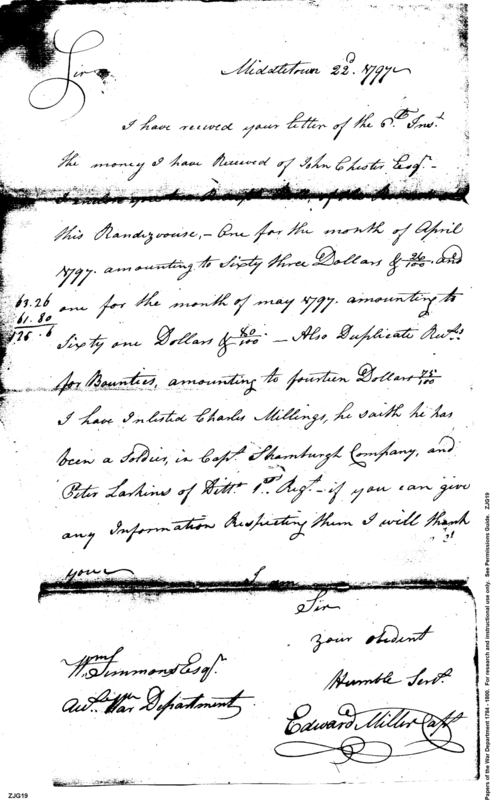 Sir
Middletown 22d. 1797
I have recieved your letter of the 6th Inst.
the money I have Recieved of John Chester Esqr.
this Randezvouse, - One for the month of April
1797. amounting to Sixty three Dollars & 26/100. and
63.26
61.80
one for the month of may 1797. amounting to
Sixty one Dollars & 80/100 - Also Duplicate
for Bounties, amounting to fourteen Dollars 75/100
I have Inlisted Charles Millings, he saith he has
been a Soldier, in Capt. Company, and
Peter Larkins of Ditto. Regt. - if you can give
any Information Respecting them I will thank
you
I am
Sir
your obedient
Humble Servt.
Edward Miller Capt
Wm Simmons Esqr.
War Department
ZJG19
Papers of the War Department 1784 - 1800. For research and instructional use only. See Permissions Guide. ZJG19